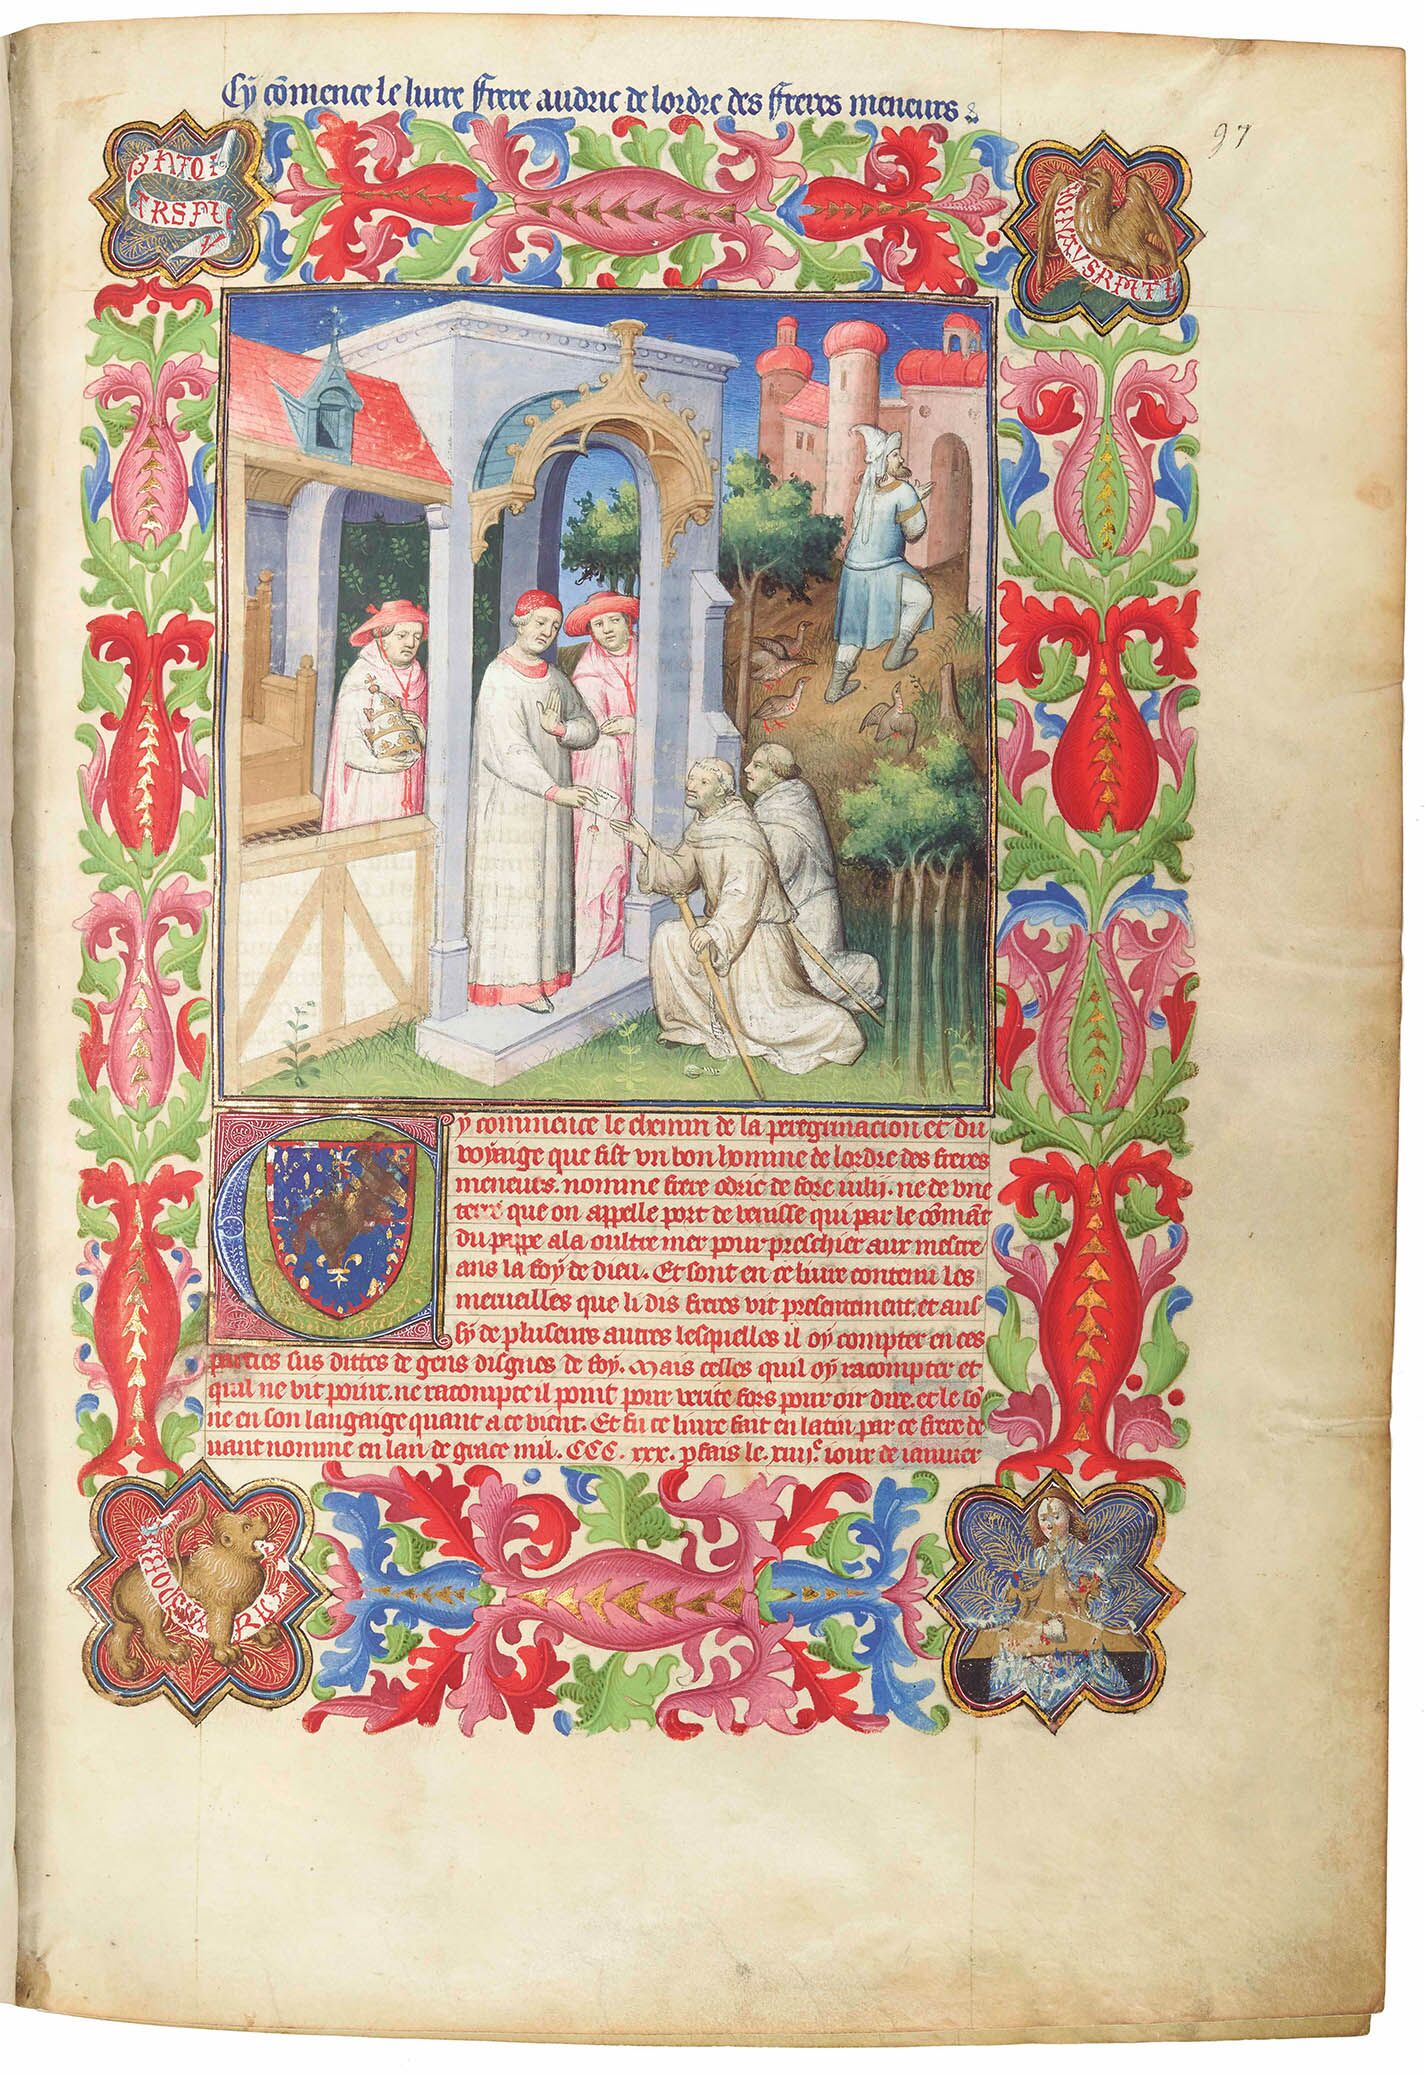 Cy cōmence le liure frere audric de lordre des freres meneurs
97
Cy commence le chemin de la peregrinacion et du
voyaige que fist vn bon homme de lordre des freres
meneurs. nomme frere odric de fore iulij. ne de vne
terre que on appelle port de venisse qui par le cōmāt
du pappe ala oultre mer pour preschier aux mescre
ans la foy de dieu. Et sont en ce liure contenu les
merueilles que li dis freres vit presentement. et aus
sy de pluseurs autres lesquelles il oy compter en ces
parties sus dittes de gens dignes de foy. Mais celles quil oy racompter et
quil ne vit point. ne racompte il point pour verite fors pour oir dire. et le
ne en son langaige quant a ce vient. Et fu ce liure fait en latin par ce frere de
uant nomme en lan de grace mil. CCC. xxx. pfais le. xiiijᵉ iour de ianuier